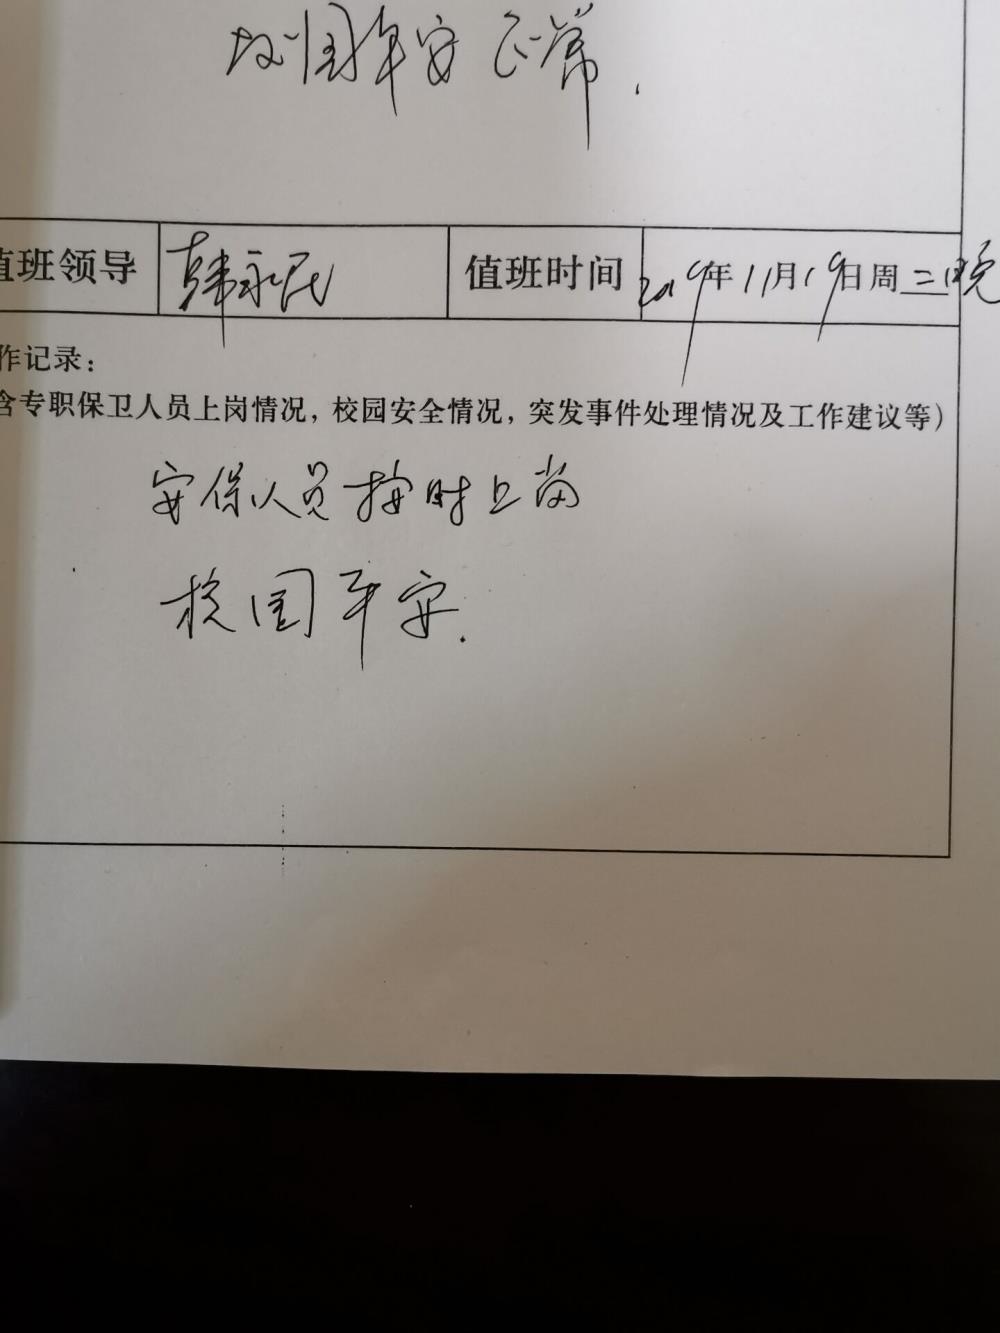 校园平安正常.
值班领导 韩永民 值班时间 2019年11月19日周二晚
作记录：
含专职保卫人员上岗情况，校园安全情况，突发事件处理情况及工作建议等）
安保人员按时上岗
校园平安.